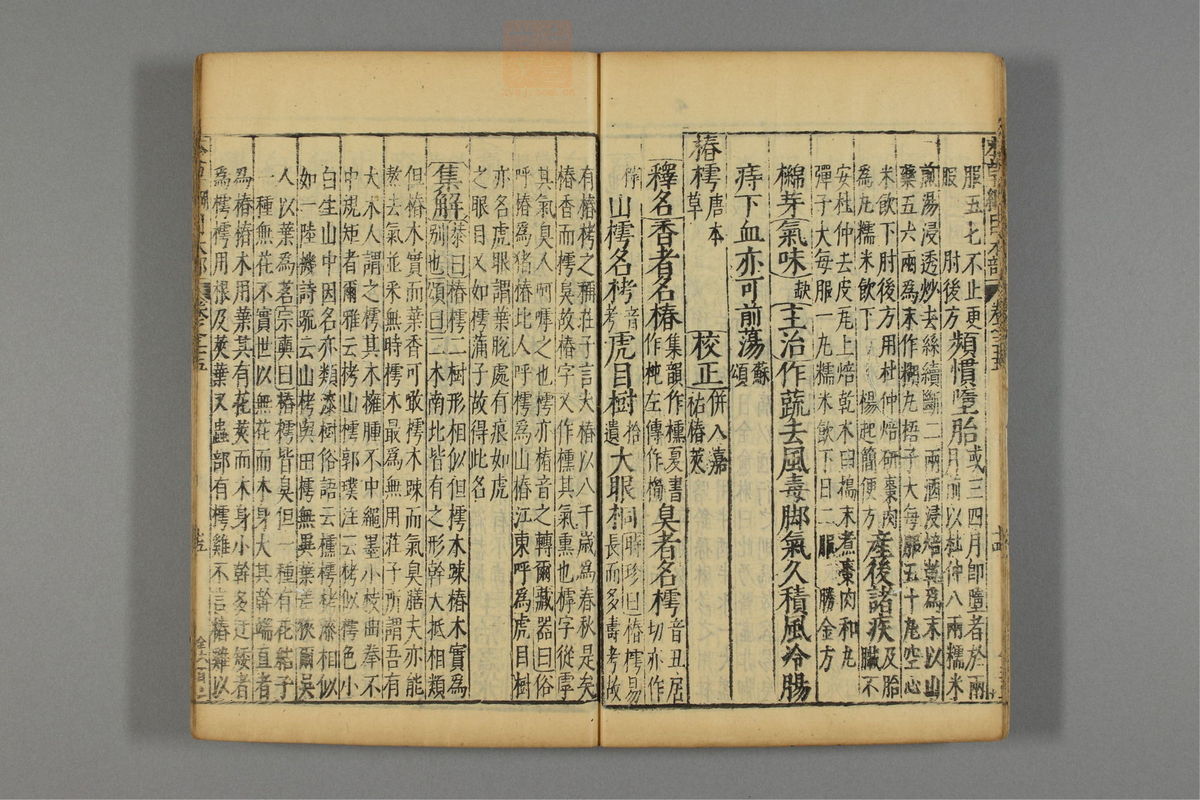 本草綱目木部 卷三十五
服五七不止更
服 肘後方 頻慣墮胎 或三四月即墮者於兩
月前以杜仲八兩糯米
煎湯浸透炒去絲續斷二兩酒浸焙乾為末以山
藥五六兩為末作糊丸梧子大每服五十丸空心
米飲下肘後方用杜仲焙研棗肉
為丸糯米飲下 楊起簡便方 產後諸疾 及胎
臟不
安杜仲去皮瓦上焙乾木臼搗末煮棗肉和丸
彈子大每服一丸糯米飲下日二服 勝金方
檰芽氣味缺主治作蔬去風毒脚氣久積風冷腸
痔下血亦可煎湯蘇頌
椿樗唐本草 校正併入嘉祐椿莢
釋名香者名椿集韻作櫄夏書作杶左傳作橁臭者名樗音丑居切亦作
㯉山樗名栲音考虎目樹拾遺大眼桐時珍曰椿樗易長而多壽考故
有椿栲之稱莊子言大椿以八千歲為春秋是矣
椿香而樗臭故椿字又作櫄其氣熏也樗字從虖
其氣臭人呵嘑之也樗亦椿音之轉爾藏器曰俗
呼椿為豬椿北人呼樗為山椿江東呼為虎目樹
亦名虎眼謂葉脫處有痕如虎
之眼目又如樗蒲子故得此名
集解恭曰椿樗二樹形相似但樗木疎椿木實為
別也頌曰二木南北皆有之形幹大抵相類
但椿木實而葉香可啖樗木疎而氣臭膳夫亦能
熬去氣並采無時樗木最為無用莊子所謂吾有
大木人謂之樗其木擁腫不中繩墨小枝曲拳不
中規矩者爾雅云栲山樗郭璞注云栲似樗色小
白生山中因名亦類漆樹俗語云櫄樗栲漆相似
如一陸機詩疏云山樗與田樗無異葉差狹爾吳
人以葉為茗宗奭曰椿樗皆臭但一種有花結子
一種無花不實世以無花而木身大其幹端直者
為椿椿木用葉其有花莢而木身小幹多迂矮者
為樗樗用根及莢葉又蟲部有樗雞不言椿雞以
本草綱目木部 卷三十五